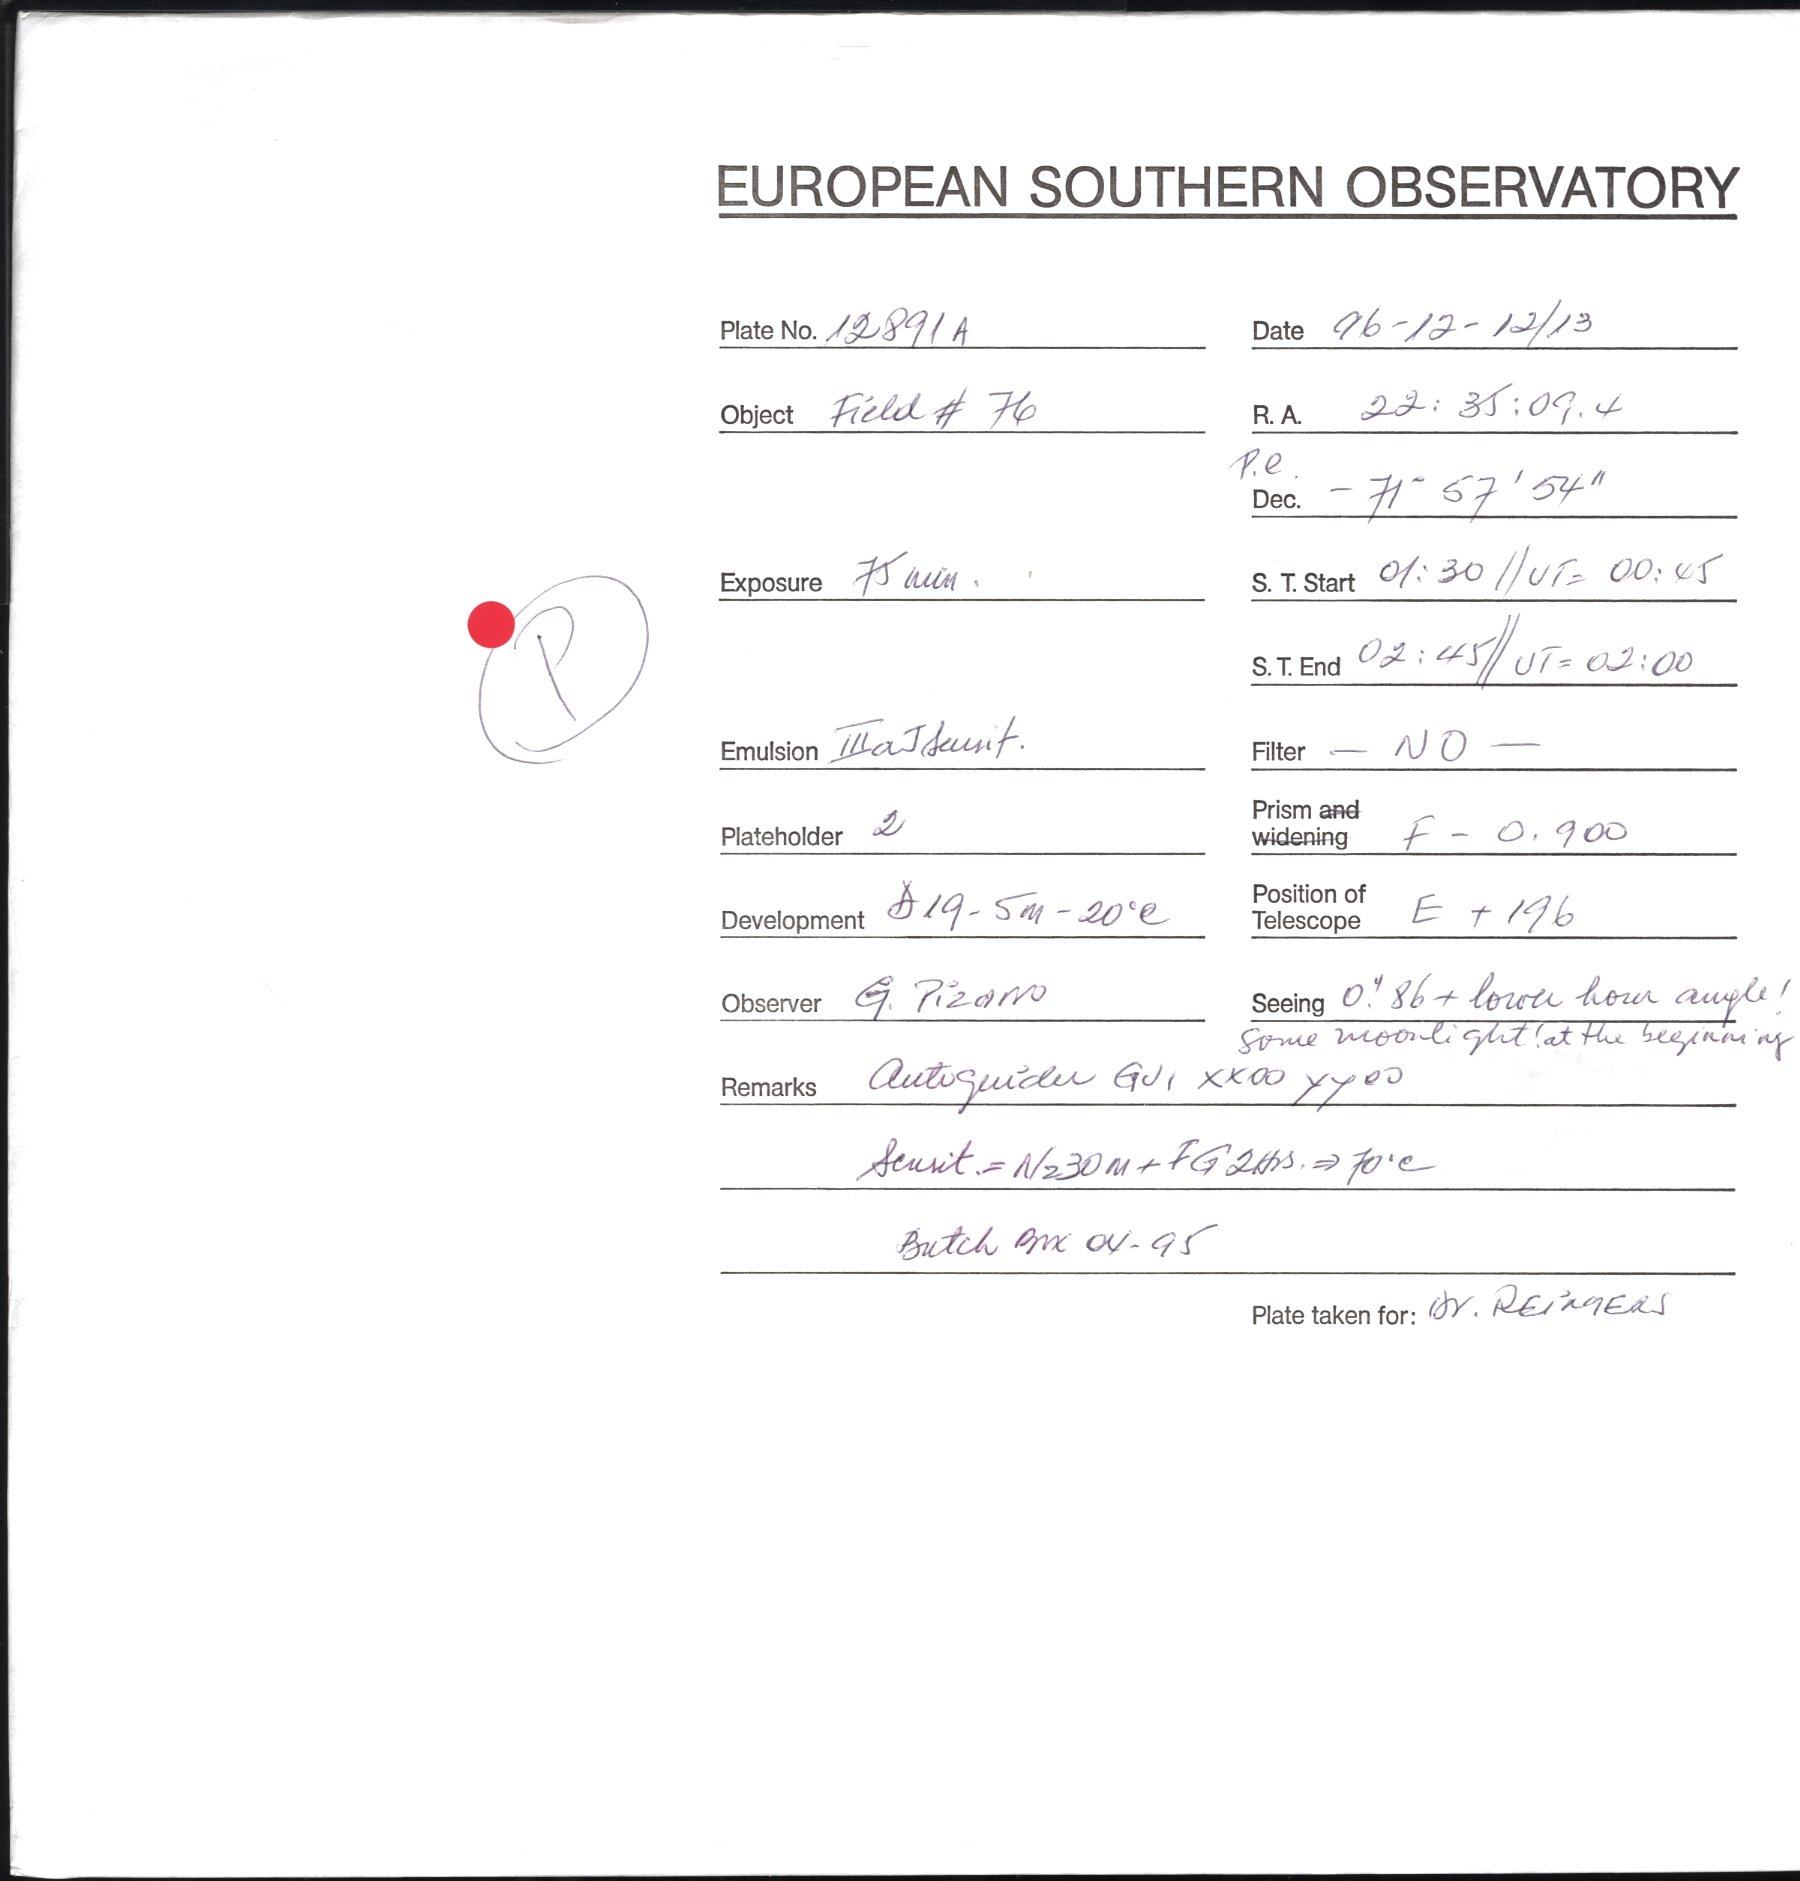 EUROPEAN SOUTHERN OBSERVATORY
Plate No. 12891A
Date 96-12-12/13
Object Field # 76
R. A. 22: 35:09.4
P.e.
Dec. - 71° 57' 54"
Exposure 75 min.
S. T. Start 01:30 // UT= 00:45
P
S. T. End 02:45 // UT= 02:00
Emulsion IIIaJ sensit.
Filter — NO —
Plateholder 2
Prism and widening F - 0.900
Development D19-5m-20°C
Position of Telescope E + 196
Observer G. Pizarro
Seeing 0."86 + lower hour angle!
some moonlight! at the beginning
Remarks Autoguider GV1 XX00 YY00
Sensit.= N230m + FG 2Hrs. ⇒ 70°C
Batch 04-95
Plate taken for: Dr. REIMERS